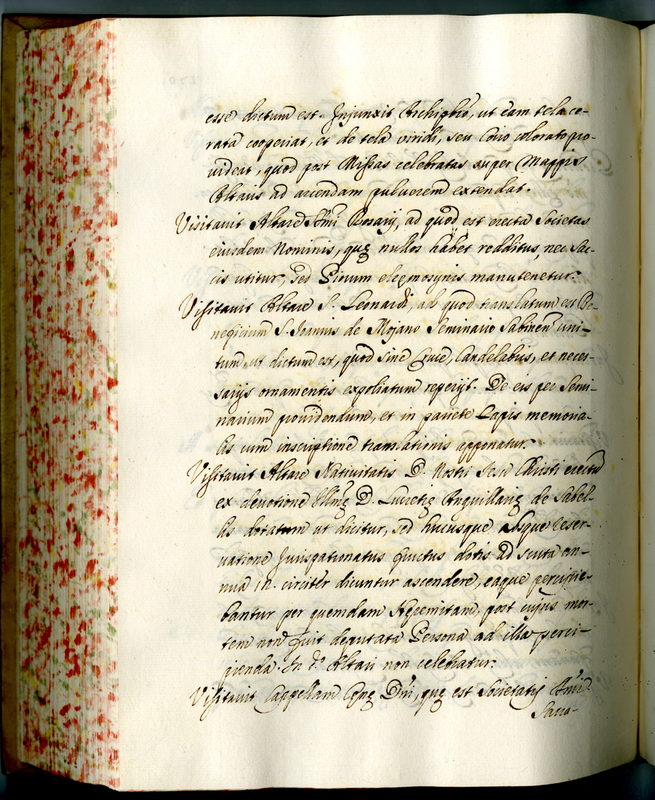 esse dictum est. Injunxit Archipbro, ut eam tela ce-
rata cooperiat, et de tela viridi, seu Corio colorato pro-
videat, quod post Missas celebratas super Mappis
Altaris ad arcendam pulverem extendat.
Visitavit Altare SSmi Rosarij, ad quod est erecta Societas
eiusdem Nominis, quę nullos habet redditus, nec sac-
cis utitur, sed Piorum eleęmosynis manutenetur.
Visitavit Altare S. Leonardi, ad quod translatum est Be-
neficium S. Joannis de Mojano Seminario Sabinen uni-
tum, ut dictum est, quod sine Cruce, Candelabris, et neces-
sarijs ornamentis expoliatum reperijt. De eis per Semi-
narium providendum, et in pariete Lapis memoria-
lis cum inscriptione translationis apponatur.
Visitavit Altare Nativitatis D. Nostri Jesu Christi erectum
ex devotione Illmę D. Lucretię Anguillarę de Sabel-
lis dotatum ut dicitur, sed hucusque absque reser-
vatione Jurispatronatus fructus dotis ad scuta an-
nua circiter dicuntur ascendere, eaque percipie-
bantur per quemdam Heremitam, post cujus mor-
tem non fuit deputata Persona ad illa perci-
pienda. In do Altari non celebratur.
Visitavit Cappellam Cęnę Dni, quę est Societatis SSmi
Sacra-